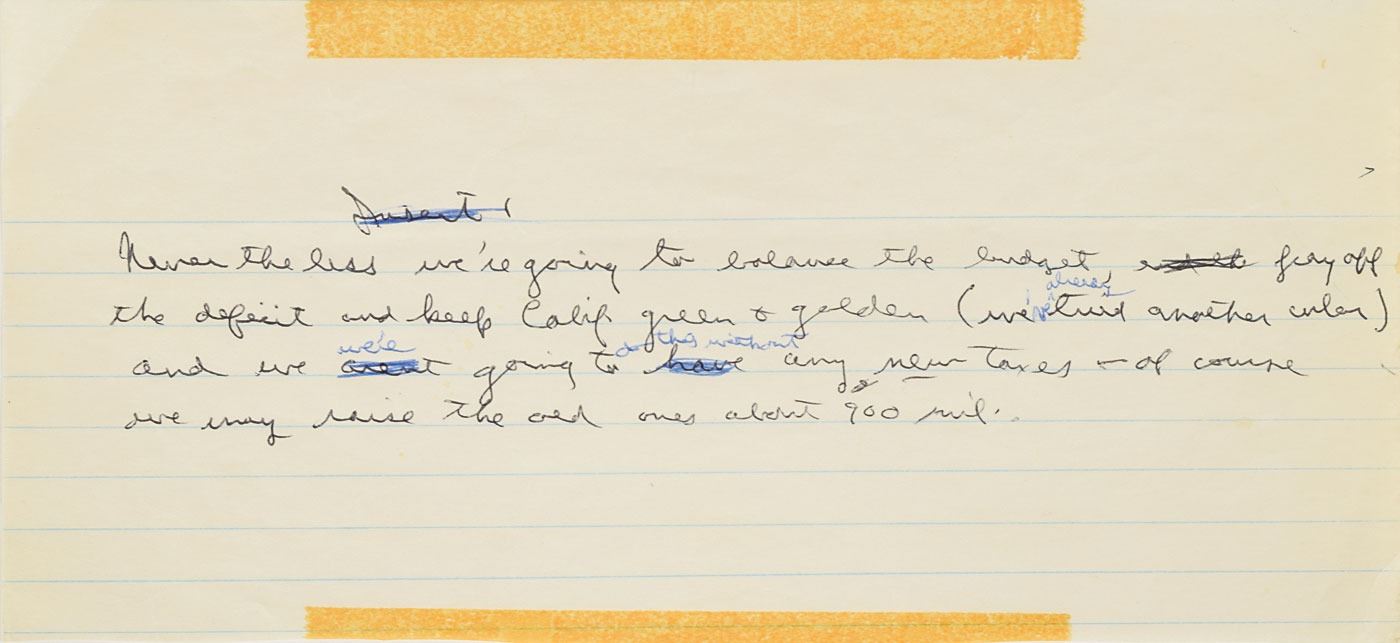 Insert
Never the less we're going to balance the budget pay off
already
the deficit and keep Calif. green & golden (we've tri'd another color)
we're do this without
and we arent going to have any new taxes - of course
we may raise the old ones about 900 mil.